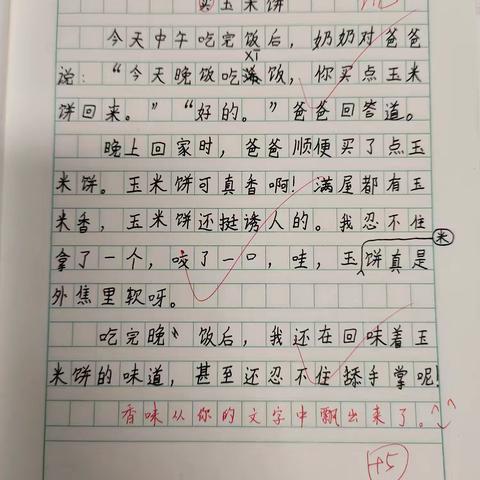 买玉米饼
今天中午吃完饭后，奶奶对爸爸
xī
说：“今天晚饭吃稀饭，你买点玉米
饼回来。”“好的。”爸爸回答道。
晚上回家时，爸爸顺便买了点玉
米饼。玉米饼可真香啊！满屋都有玉
米香，玉米饼还挺诱人的。我忍不住
米
拿了一个，咬了一口，哇，玉饼真是
外焦里软呀。
吃完晚饭后，我还在回味着玉
米饼的味道，甚至还忍不住舔手掌呢！
香味从你的文字中飘出来了。
+5